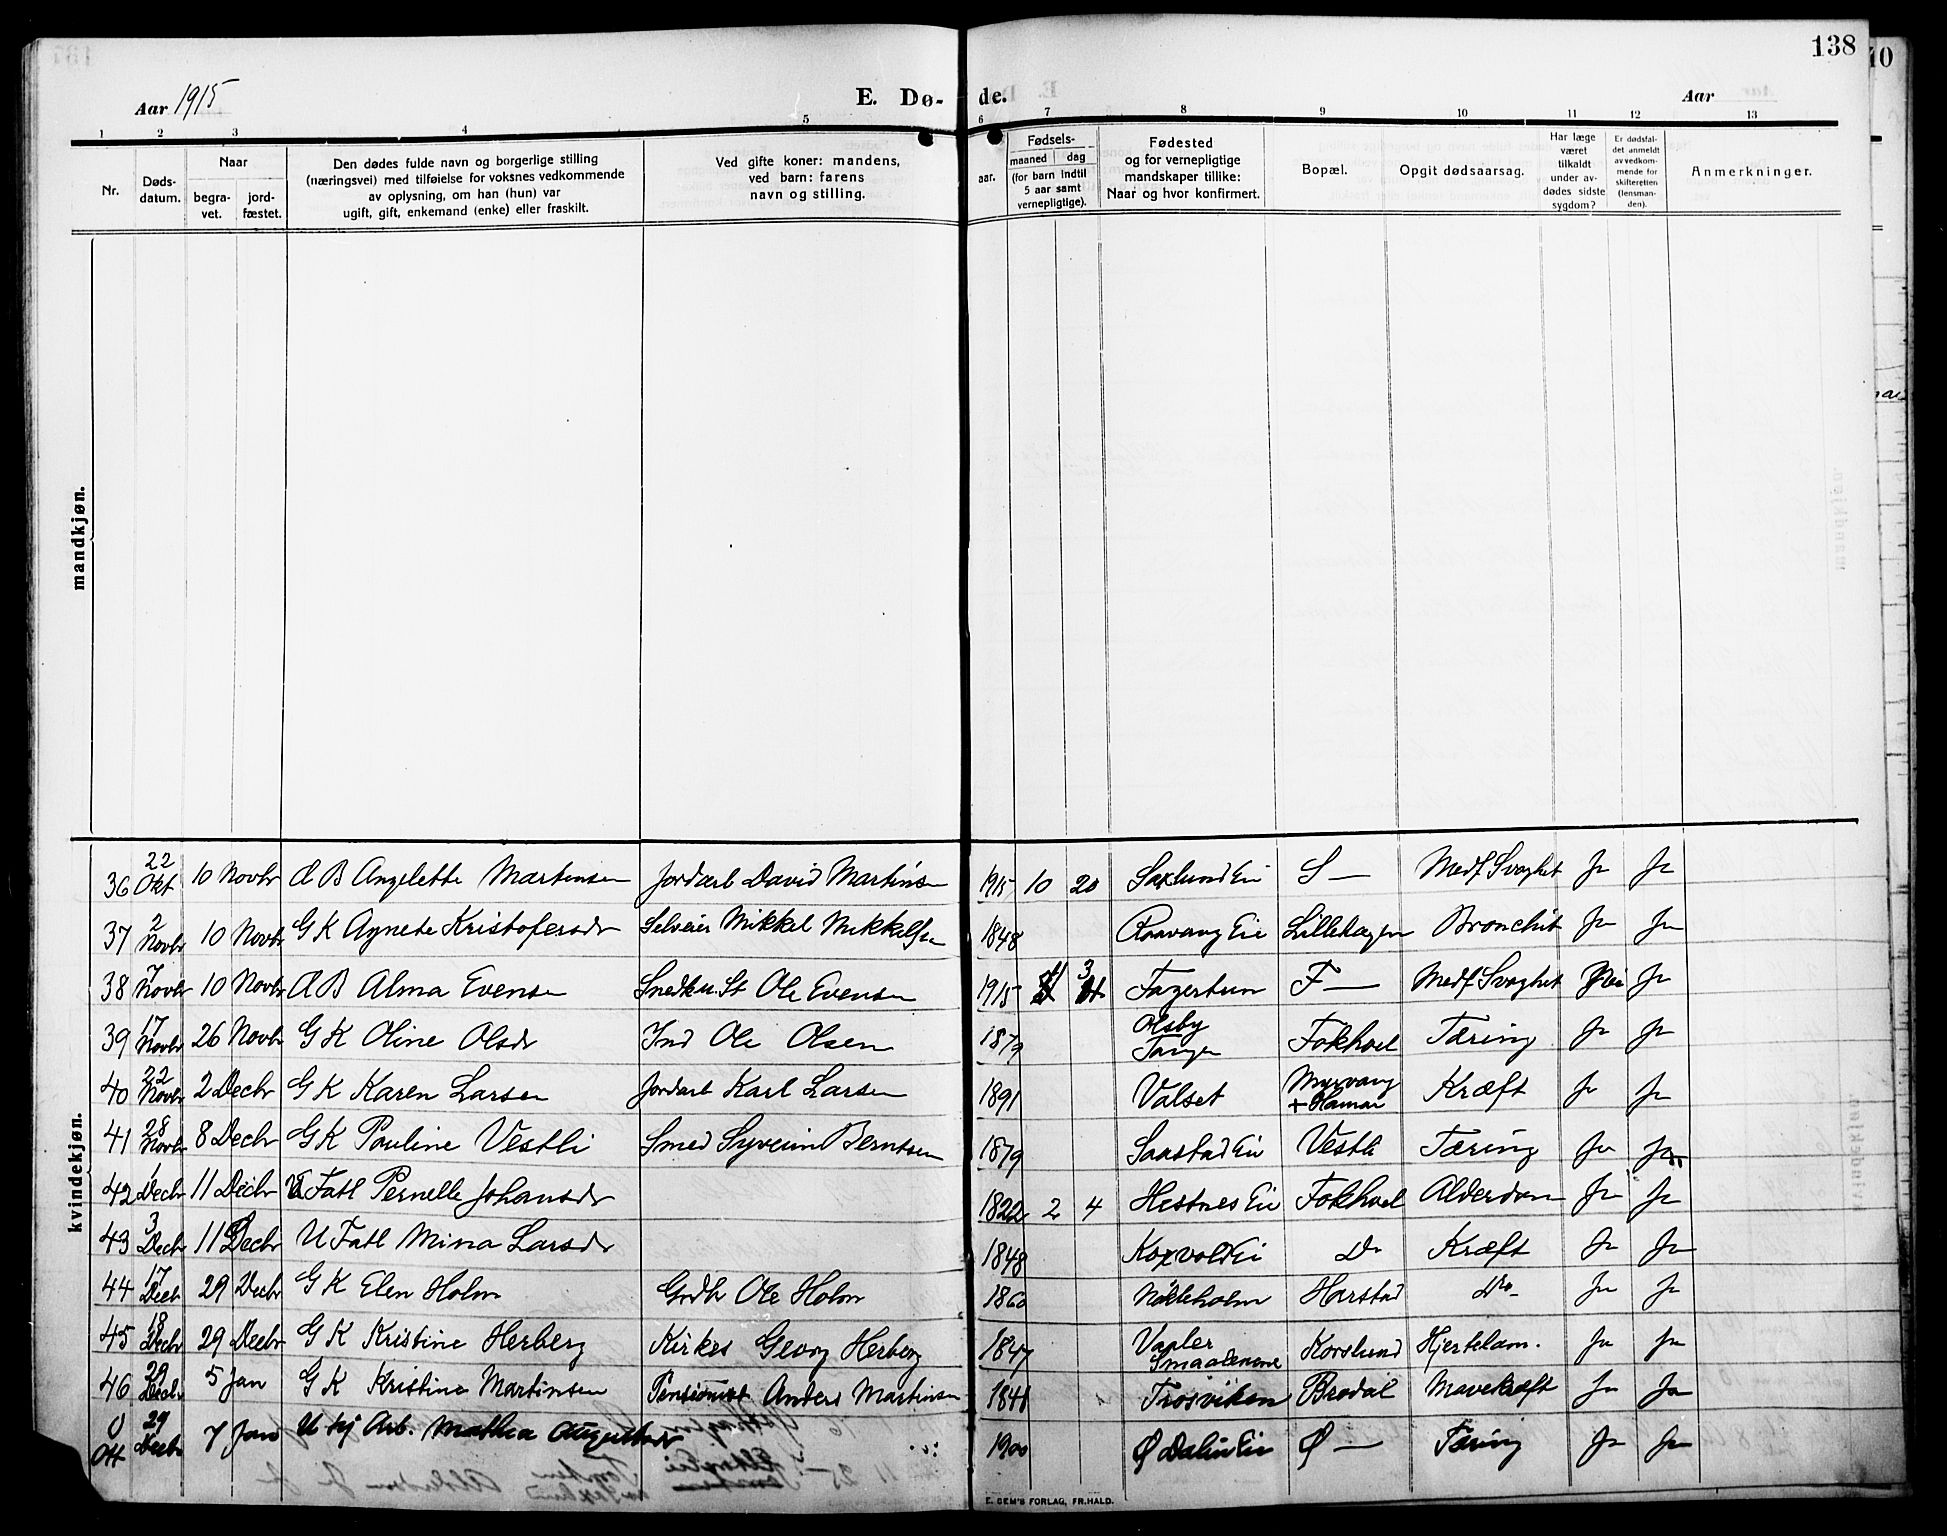 138
Aar 1915
E. Dø-
de.
Aar
1 2 3 4 5 6 7 8 9 10 11 12 13
Nr.
Døds-
datum.
Naar
begra-
vet.
jord-
fæstet.
Den dødes fulde navn og borgerlige stilling
(næringsvei) med tilføielse for voksnes vedkommende
av oplysning, om han (hun) var
ugift, gift, enkemand (enke) eller fraskilt.
Ved gifte koner: mandens,
ved barn: farens
navn og stilling.
aar.
Fødsels-
maaned dag
(for barn indtil
5 aar samt
vernepligtige).
Fødested
og for vernepligtige
mandskaper tillike:
Naar og hvor konfirmert.
Bopæl.
Opgit dødsaarsag.
Har læge
været
tilkaldt
under av-
dødes sidste
sygdom?
Er dødsfal-
det anmeldt
av vedkom-
mende for
skifteretten
(lensman-
den).
Anmerkninger.
mandkjøn.
kvindekjøn.
36 22 Okt 10 Novbr B Angelette Martinsen Jordarb David Martinsen 1915 10 20 Saxlund Eie S — Medf Svaghet Ja Ja
37 2 Novbr 10 Novbr G K Agnete Kristofersdr Selveier Mikkel Mikkelsen 1848 Eie Lillehagen Bronchit Ja Ja
38 7 Novbr 10 Novbr B Alma Evensen Snedk u. St Ole Evensen 1915 3 Fagertun F — Medf Svaghet Nei Ja
39 17 Novbr 26 Novbr G K Oline Olsdr Ind Ole Olsen 1879 Olsby Tangen Fokhoel Tæring Ja Ja
40 22 Novbr 2 Decbr G K Karen Larsen Jordarb Karl Larsen 1891 Valset Myrvang + Hamar Kræft Ja Ja
41 28 Novbr 8 Decbr G K Pauline Vestli Smed Syverin Berntsen 1879 Saastad Ei Vestli Tæring Ja Ja
42 1 Decbr 11 Decbr Fatl Pernelle Johansdr 1822 2 4 Hestnes Eie Fokhoel Alderdom Ja Ja
43 3 Decbr 11 Decbr U Fatl Mina Larsdr 1848 Koxvold Ei Do Kræft Ja Ja
44 17 Decbr 29 Decbr G K Elen Holm Grdbr Ole Holm 1860 Nökleholm Harstad Do Ja Ja
45 18 Decbr 29 Decbr G K Kristine Herberg Kirkes Georg Herberg 1847 Vaaler Smaalenene Korslund Hjertelam. Ja Ja
46 29 Decbr 5 Jan G K Kristine Martinsen Pensionist Anders Martinsen 1841 Trosviken Brodal Mavekræft Ja Ja
29 Decbr 7 Jan U tj Arb. Mathea Augustsdr 1900 Ø Dalin Eie Ø — Tæring Ja Ja
E. SEM'S FORLAG, FR.HALD.